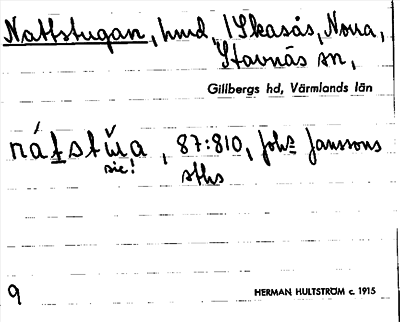 Nattstugan, hmd, 1 Skasås, Norra,
Stavnäs sn,
Gillbergs hd, Värmlands län
nátstŭa, 87:810, Johs Janssons
sic! sths
9
HERMAN HULTSTRÖM c. 1915